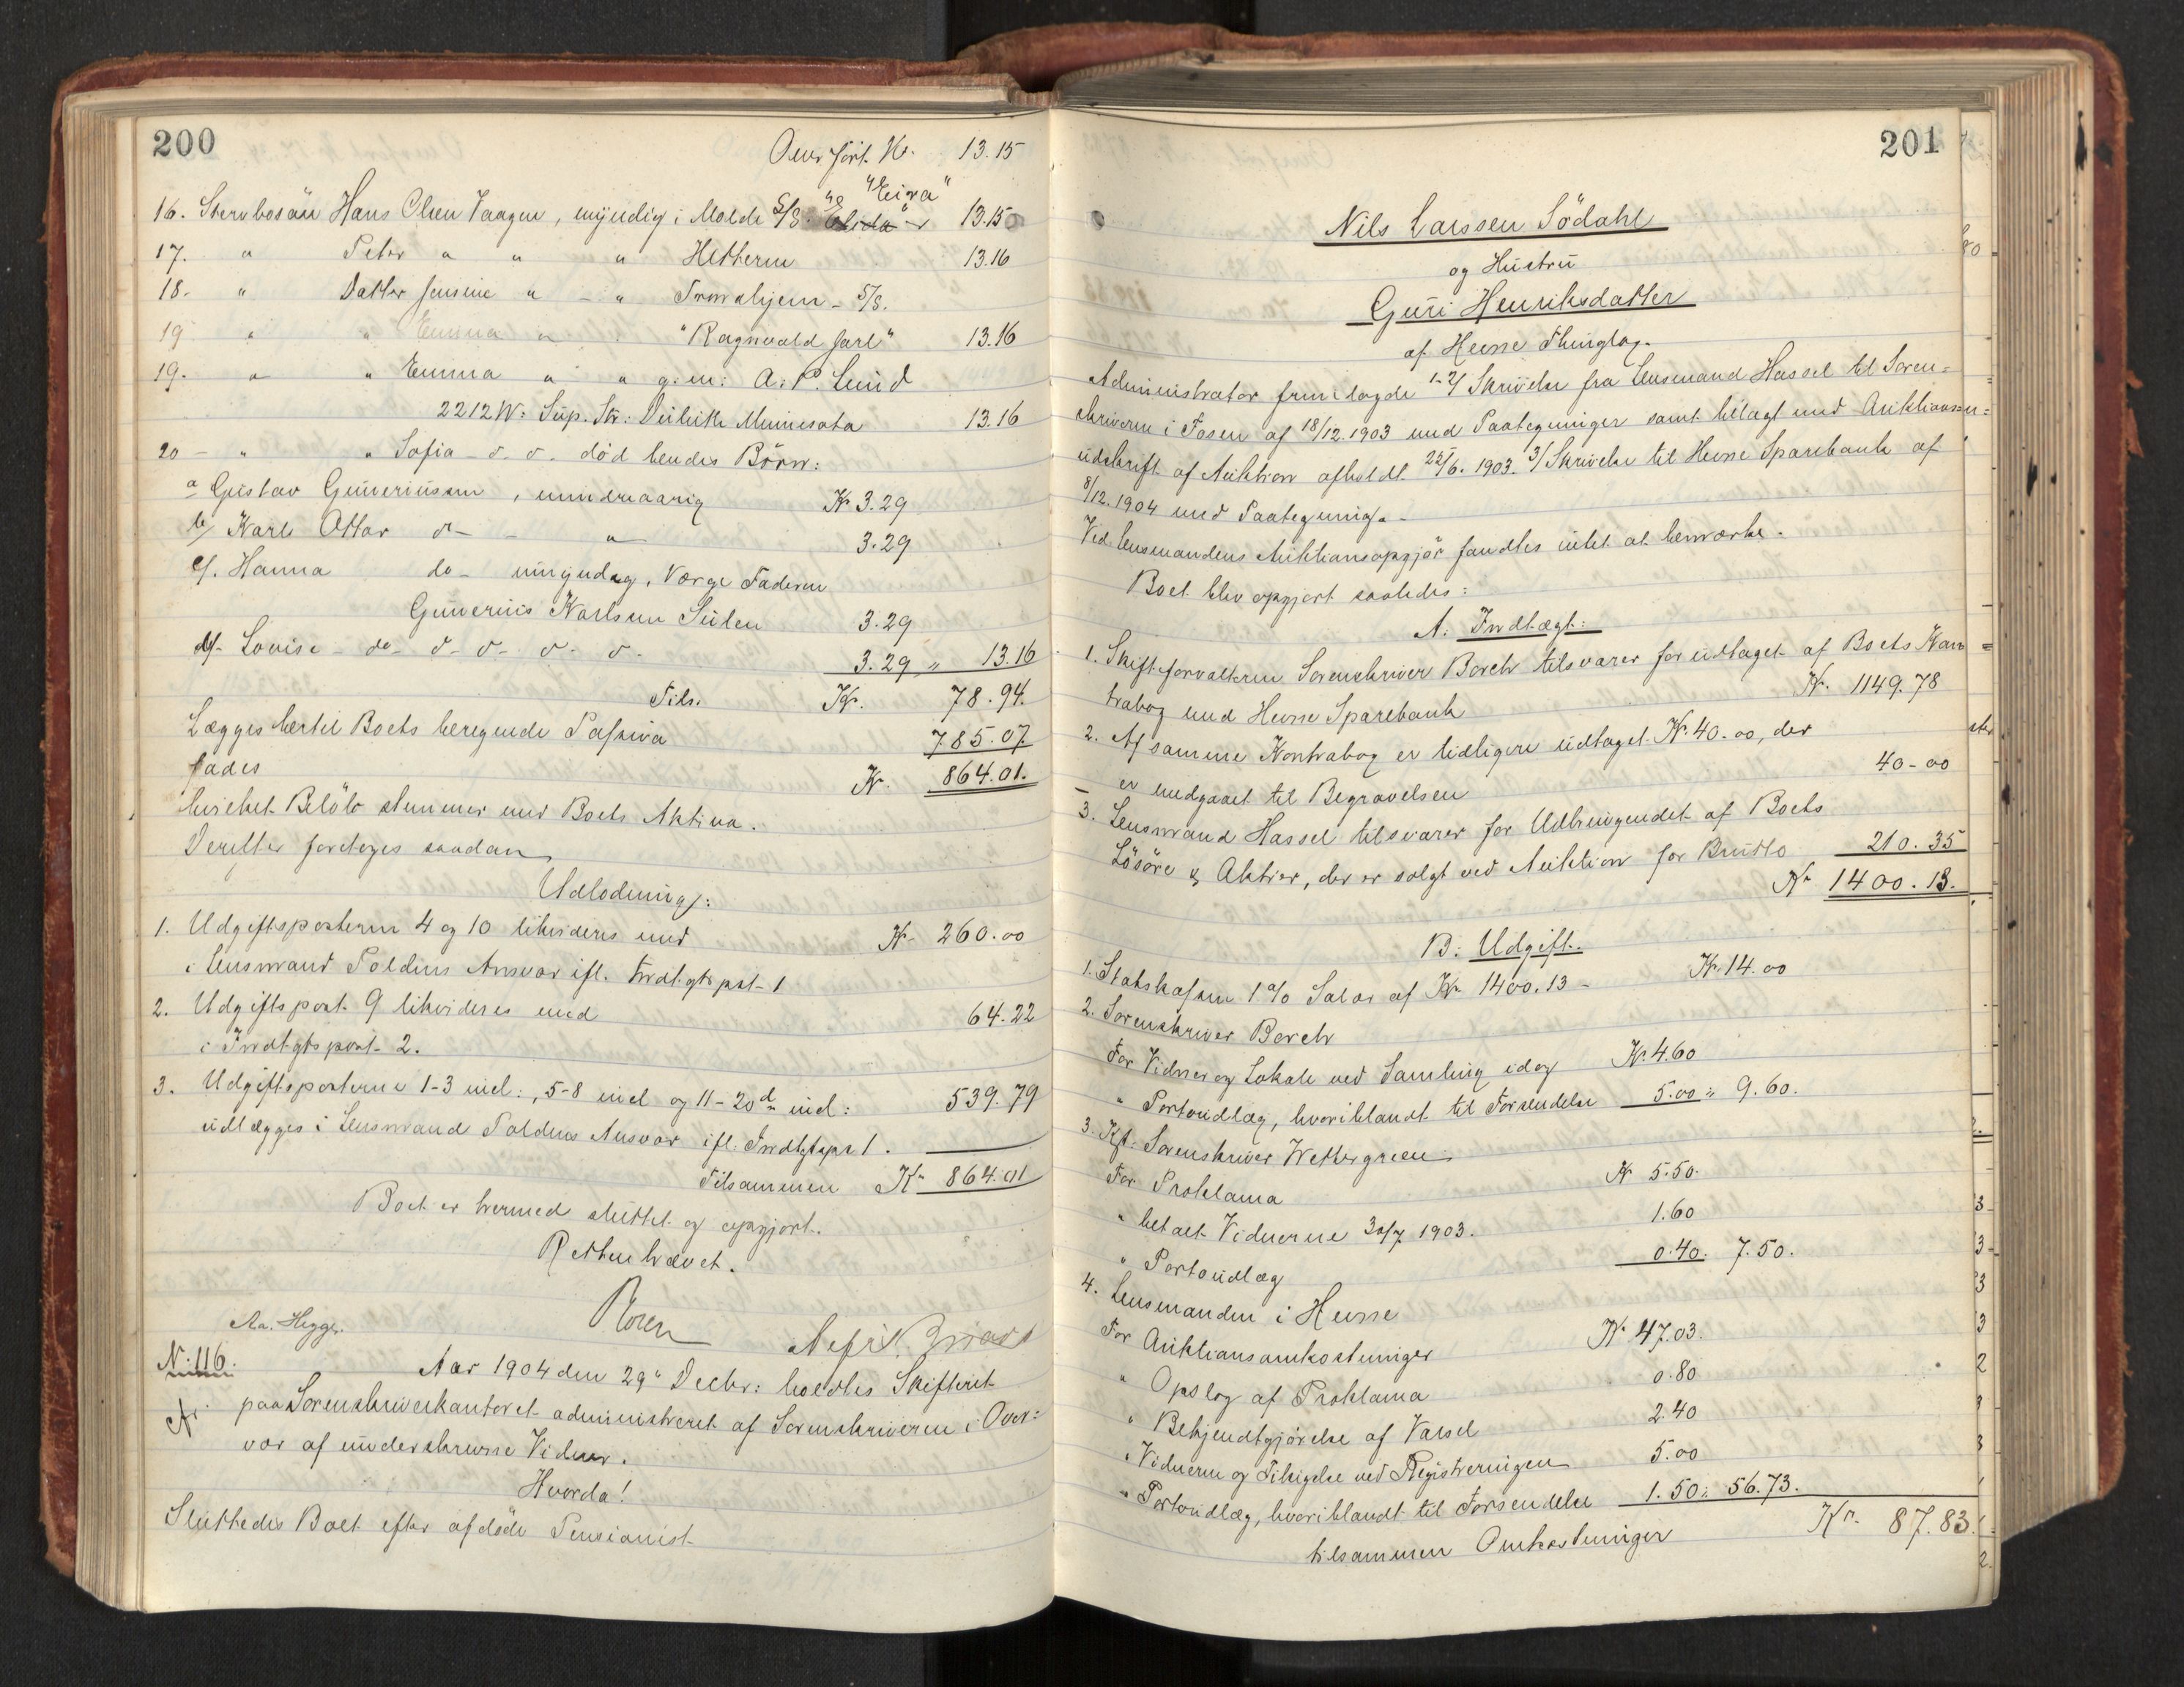 200
Overført Kr. 13.15
"Eira"
16. Stervbosøn Hans Olsen Vaagen, myndig i Molde S/S. 13.15
17. " Peter " " " Hitteren 13.16
18. " Datter Jensine " - " Trondhjem - S/S.
19 " " Emma " "Ragnvald Jarl" 13.16
19. " " Emma " " g:m: A. P. Lund
2212 W: Sup. Str: Duluth Minnesota 13.16
20 - " " Sofia - d. d. død hendes Børn:
a Gustav Guneriussen, mindreaarig Kr 3.29
b/ Karl Ottar d- - " 3.29
c/. Hanna do - umyndig, Værge Faderen
Gunerius Karlsen Sulen 3.29
d/- Louise - do - d - d - d - d - 3.29 " 13.16
Tils. Kr. 78.94.
Lægges hertil Boets beregnede Passiva 785.07
faaes Kr. 864.01.
hvilket Beløb stemmer med Boets Aktiva.
Derefter foretoges saadan
Udlodning:
1. Udgiftsposterne 4 og 10 likvideres med Kr. 260.00
i Lensmand Poldens Ansvar ifl. Indtgtspst - 1
2. Udgiftspost 9 likvideres med 64.22
i Indtgtspost - 2.
3. Udgiftsposterne 1-3 incl:, 5-8 incl og 11-20d incl: 539.79
udlægges i Lensmand Poldens Ansvar ifl. Indtgtspst 1.
Tilsammen Kr 864.01
Boet er hermed sluttet og opgjort.
Retten hævet.
Aa. Hegge.
N: 116. Aar 1904 den 29" Decbr: holdtes Skifteret
paa Sorenskriverkontoret administreret af Sorenskriveren i Over=
vær af underskrevne Vidner.
Hvorda!
Sluttedes Boet efter afdøde Pensionist
201
Nils Larssen Södahl
og Hustru
Guri Henriksdatter
af Hevne Thinglag.
Administrator fremlagde 1-2/ Skrivelse fra Lensmand Hassel til Soren=
skriveren i Fosen af 18/12.1903 med Paategninger samt bilagt med Auktions=
udskrift af Auktion afholdt 22/6. 1903. 3/ Skrivelse til Hevne Sparebank af
8/12.1904 med Paategning. -
Ved Lensmandens Auktionsopgjør fandtes intet at bemærke.
Boet blev opgjort saaledes:
A: Indtægt:
1. Skifteforvalteren Sorenskriver Borch tilsvarer for udtaget af Boets Kon=
trabog med Hevne Sparebank Kr. 1149.78
2. Af samme Kontrabog er tidligere udtaget Kr. 40.00, der
er medgaaet til Begravelsen 40-00
3. Lensmand Hassel tilsvarer for Udbringendet af Boets
Løsøre & Aktier, der er solgt ved Auktion for Brutto 210.35
Kr 1400.13.
B: Udgift.
1. Statskassen 1 % Salær af Kr 1400.13 - Kr. 14.00
2. Sorenskriver Borch
For Vidner og Lokale ved Samling idag Kr. 4.60
" Portoudlæg, hvoriblandt til Forsendelse 5.00 " 9.60.
3. Kst. Sorenskriver Wettergreen
For Proklama Kr 5.50.
" betalt Vidnerne 30/7 1903. 1.60
" Portoudlæg 0.40. 7.50.
4. Lensmanden i Hevne
For Auktionsomkostninger Kr 47.03.
" Opslag af Proklama 0.80
" Bekjendtgjørelse af Varsel 2.40
" Vidnerne og Tilsigelse ved Registreringen 5.00
" Portoudlæg, hvoriblandt til Forsendelse 1.50 " 56.73.
tilsammen Omkostninger Kr. 87.83.